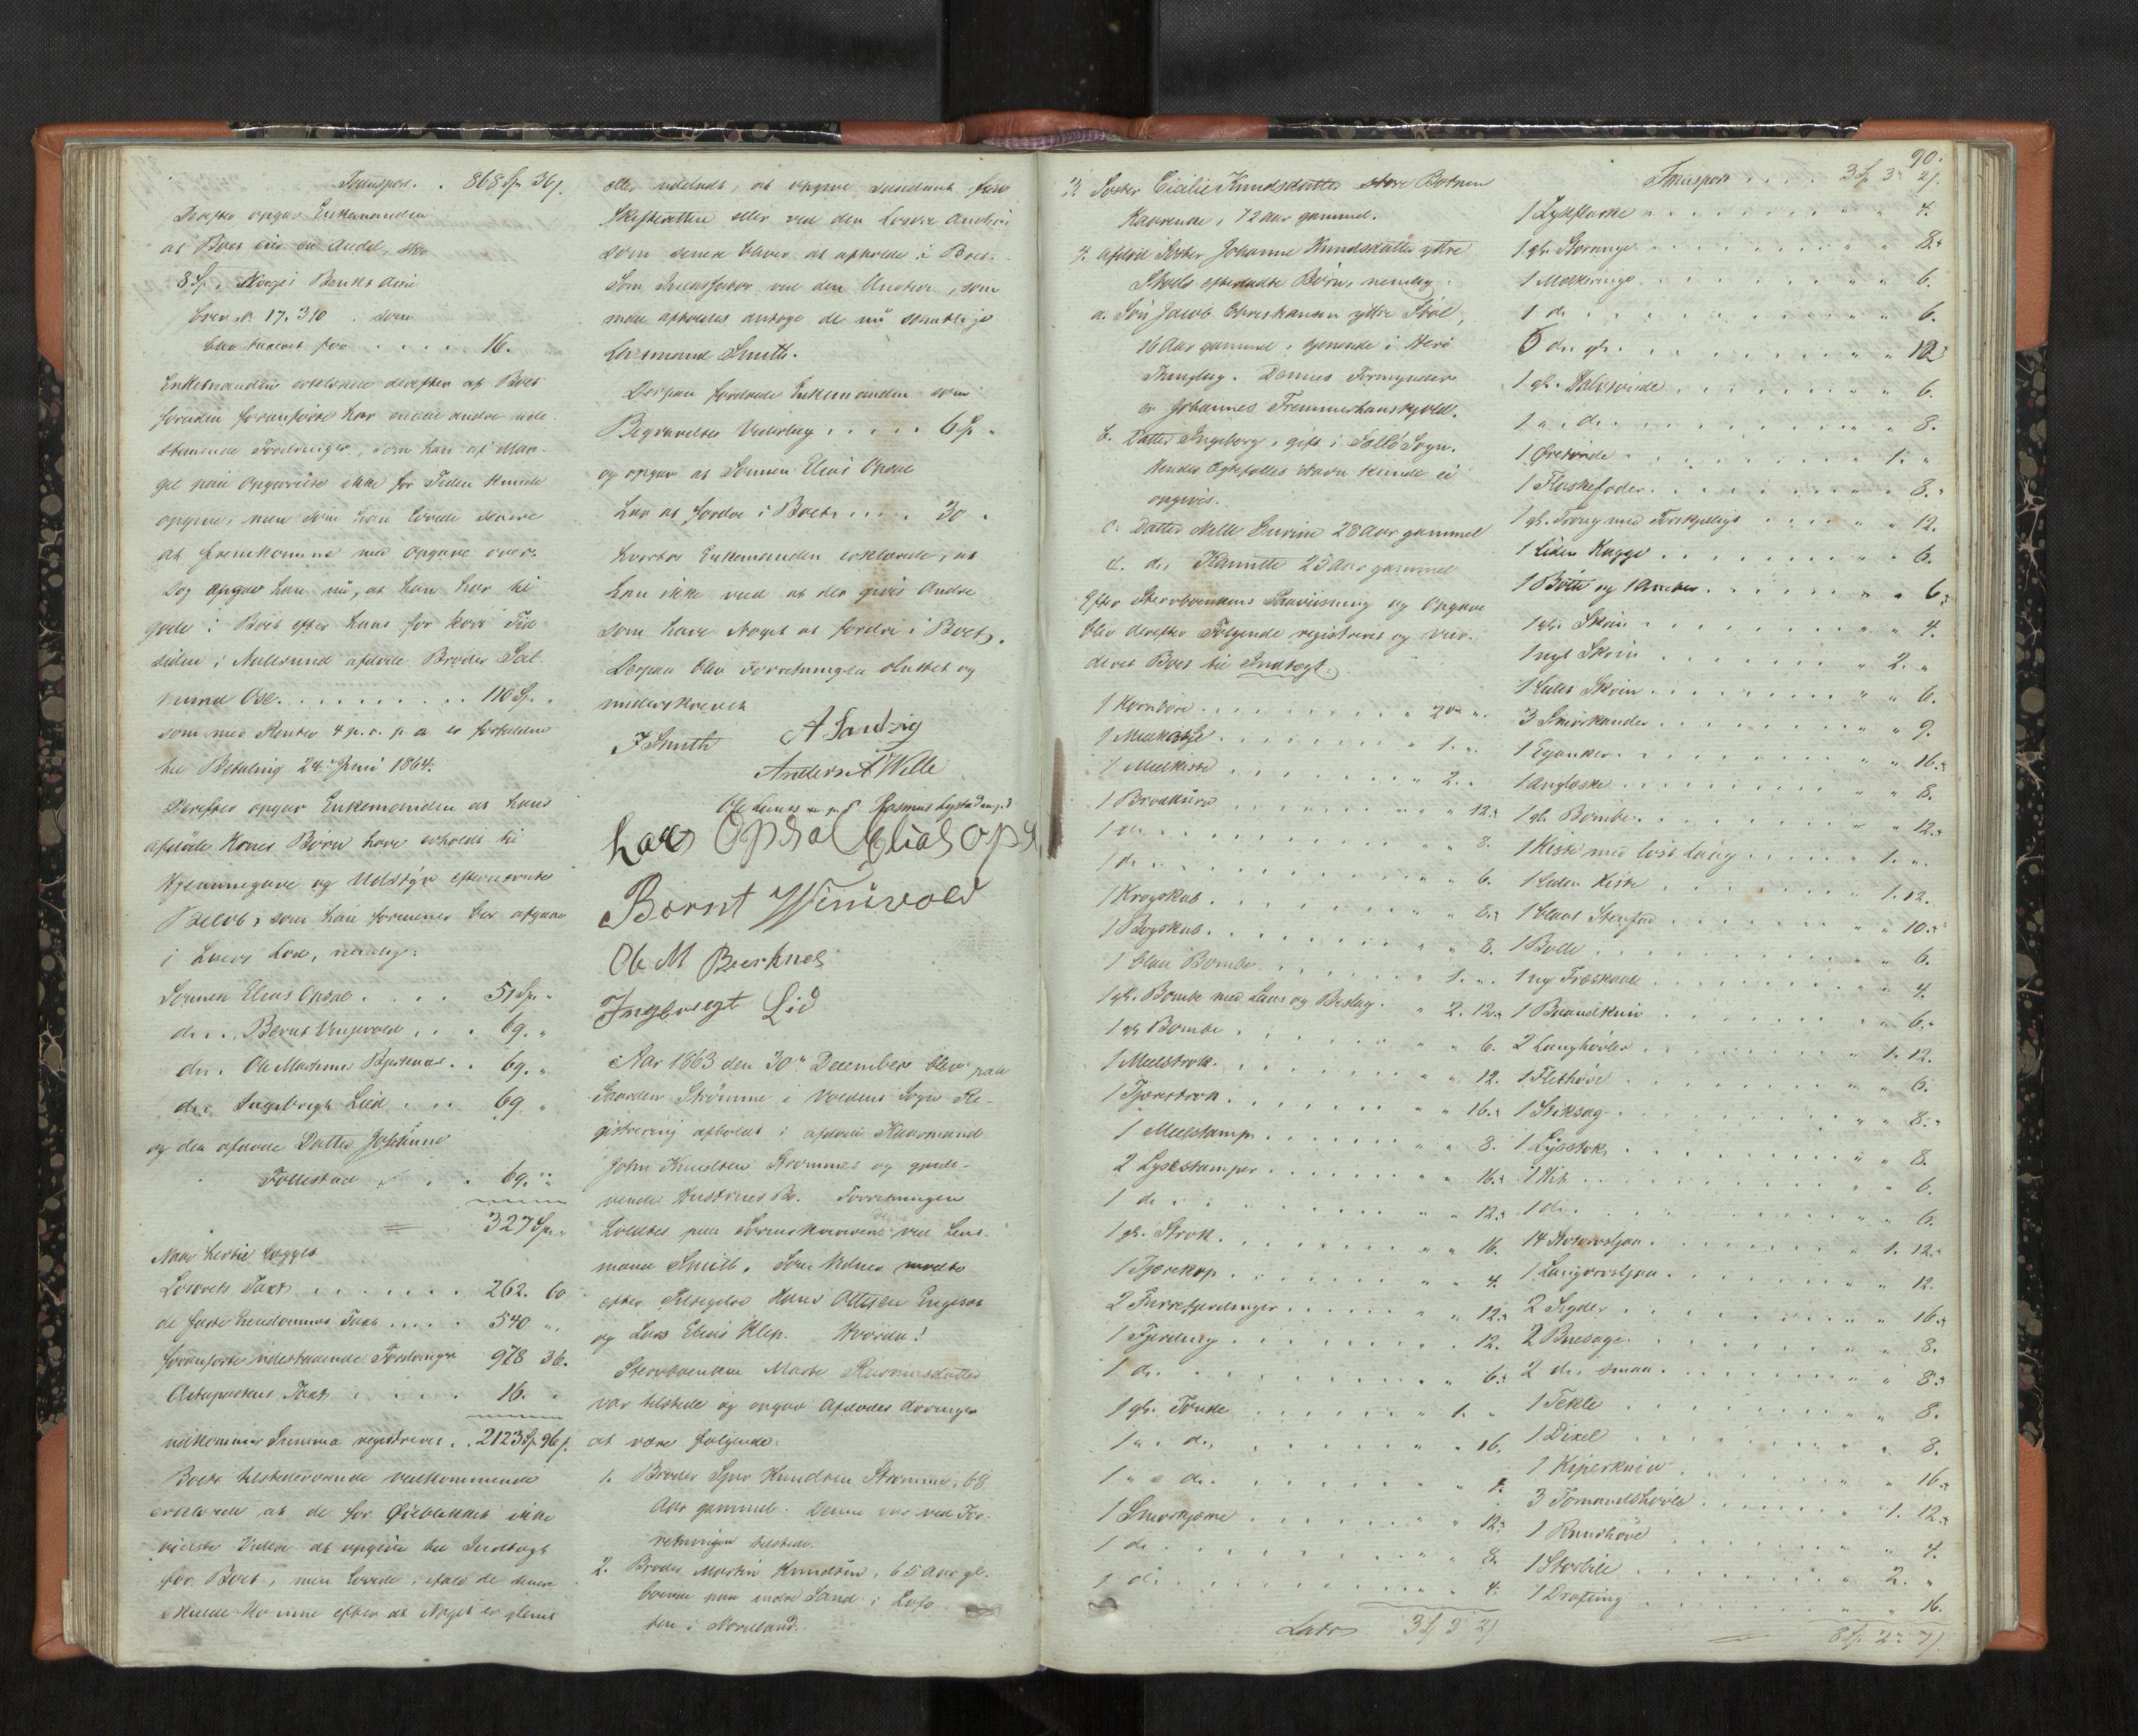 Transport . . 868 Sp 36 s.
Derefter opgav Enkemanden
at Boet eier en Andel, stor
8 Sp, Norges Banks Actie
Brev No 17.310 som
blev taxeret for . . . . 16.
Enkemanden erklærede derefter at Boet
foruden foranførte har endeel andre ude
staaende Fordringer, som han af Man-
gel paa Opgivelse ikke for Tiden kunde
opgive, men som han lovede senere
at fremkomme med Opgave over.
Dog opgav han nu, at han har til
gode i Boet efter hans for kort Tid
siden i Aalesund afdøde Broder
Ose . . . . . . . . . 110 Sp. "
som med Renter 4 p.c. p a er forfalden
til Betaling 24de Juni 1864.
Derefter opgav Enkemanden at hans
afdøde Kones Børn have erholdt til
Hjemmegave og Udstyr efternævnte
Beløb, som han formener bør afgaae
i deres Lod, nemlig:
Sønnen Elias Opsal . . . . 51 Sp. "
do. . Bernt Vinjevold . . . 69. "
do. . Ole Mathias Bjerknæs . . 69. "
do. Ingebrigt Lied . . . 69 "
og den afdøde Datter Johanne
Follestad . . . 69. "
= 327 Sp. "
Naar hertil lægges
Løsørets Taxt . . . . . . . 262. 60
de faste Eiendommes Taxt . . . . 540 "
foranførte udestaaende Fordringer 978 36.
Actiepartens Taxt . . . . 16. "
udkommer Summa registreret . . 2123 Sp 96 s.
Boets tilstedeværende vedkommende
erklærede at de for Øieblikket ikke
vidste videre at opgive til Indtægt
for Boet, men lovede, ifald de senere
skulde komme efter at Noget er glemt
eller udeladt, at opgive saadant for
Skifteretten eller ved den Løsøre Auction
som senere bliver at afholde i Boet.
Som Incassator ved den Auction, som
maa afholdes antoge de nu samtlige
Lensmand Smith.
Derpaa fordrede Enkemanden som
Begravelses Vederlag . . . . . 6 Sp "
og opgav at Sønnen Elias Opsal
har at fordre i Boet . . . . 30 "
hvorhos Enkemanden erklærede, at
han ikke ved at der gives Andre
som have Noget at fordre i Boet.
Derpaa blev Forretningen sluttet og
underskrevet
J Smith A Landzig
Anders A Velle
Ole m. p. P. Rasmus Lystad m. p. P.
Lars Opsal Elias Opsal
Bernt Winivold
Ole M Beerknes
Ingebregt Lid
Aar 1863 den 30te December blev paa
Gaarden Strømme i Voldens Sogn Re-
gistrering afholdt i afdøde Kaarmand
John Knudsen Strømmes og gjenle-
vende Hustrues Bo. Forretningen
holdtes paa Sorenskriverens Vegne ved Lens-
mand Smith. Som Vidner mødte
efter Tilsigelse Hans Ottesen Engeset
og Lars Elias Klep. Hvorda!
Stervboenken Marte Rasmusdatter
var tilstede og opgav Afdødes Arvinger
at være følgende:
1. Broder Sjur Knudsen Strømme, 68
Aar gammel. Denne var ved For-
retningen tilstede.
2. Broder Martin Knudsen, 65 Aar gl.
boende paa indre Sand i Lofo-
ten i Nordland.
90.
3. Søster Cicilie Knudsdatter store Botnen
Kaarenke, 72 Aar gammel.
4. Afdød Søster Johanne Knudsdatter yttre
Støls efterladte Børn, nemlig:
a. Søn Jacob Christiansen yttre Støl,
16 Aar gammel, tjenende i Herø
Thinglag. Dennes Formynder
er Johannes Fremmerhauskjold.
b. Datter Ingeborg, gift i Sogn.
Hendes Ægtefælles Navn kunde ei
opgives.
c. Datter Nelle Gurine 28 Aar gammel
d. do. Hannitte 25 Aar gammel
Efter Stervboenkens Paaviisning og Opgave
blev derefter Følgende registreret og vur-
deret Boet til Indtægt.
1 Kornbøre . . . . . . . . " 2 " ".
1 Meelkiste . . . . . . . . " 1. ".
1 Meelkiste . . . . . . . . " 2. "
1 Brødkurv . . . . . . . . " " 12.
1 do . . . . . . . . " " 8.
1 do . . . . . . . . " " 6.
1 Krogskab . . . . . . . . " " 8.
1 Bogskab . . . . . . . . " " 8.
1 blaa Bombe . . . . . . . . 1. ".
1 gl. Bombe med Laas og Beslag . " 2. 12.
1 gl Bombe . . . . . . . . " " 6.
1 Meeltrok . . . . . . . . " " 12.
1 Tjæretron . . . . . . . . " " 16.
1 Meelstamp . . . . . . . . " " 8.
2 Lysestamper . . . . . . . " " 16.
1 do . . . . . . . . " " 12.
1 gl. Strok . . . . . . . . " " 16.
1 Tjærekop . . . . . . . . " " 4.
2 Furrefjerdinger . . . . . . " " 12.
1 Fjerding . . . . . . . . " " 12.
1 do . . . . . . . . " " 6.
1 gl. Tønde . . . . . . . . " 1. "
1 " do . . . . . . . . " " 16.
1 " " do . . . . . . . . " " 8.
1 Smørkjerne . . . . . . . . " " 12.
1 do . . . . . . . . " " 8.
1 do . . . . . . . . " " 4.
Lats 3 Sp 3 21
Transport . . . . 3 Sp 3 " 21.
1 Lyseflaske . . . . . . . . " " 4.
1 gl. Storange . . . . . . . . " " 8.
1 Melkeringe . . . . . . . . " " 6.
1 do . . . . . . . . " " 6.
5 do. gl. . . . . . . . . " " 12.
1 gl. . . . . . . . . " " 6.
1 " do. . . . . . . . . " " 8.
1 . . . . . . . . 1. "
1 Flaskefoder . . . . . . . . " " 8.
1 gl. Troug med Forskjelligt . . . . " " 12.
1 liden Kagge . . . . . . . . " " 6.
1 Bøtte og 1 Amber . . . . . . " " 6.
1 gl. Skrin . . . . . . . . " " 4.
1 nyt Skrin . . . . . . . . " 2. "
1 lidet Skrin . . . . . . . . " " 6.
3 Smørkander . . . . . . . . " " 9.
1 Eganker . . . . . . . . " " 16.
1 . . . . . . . . " " 8.
1 gl. Bombe . . . . . . . . " " 12.
1 Kiste med løst Laag . . . . . " 1. ".
1 liden Kiste . . . . . . . . " 1. 12.
1 blaat Steenfad . . . . . . . " " 10.
1 Bolle . . . . . . . . " " 6.
1 ny Træskaal . . . . . . . . " " 4.
1 Baandkniv . . . . . . . . " " 6.
2 Langhøvler . . . . . . . . " 1. 12.
1 Slethøvl . . . . . . . . " " 6.
1 Stiksag . . . . . . . . " " 8.
1 Lysstok . . . . . . . . " " 8.
1 Kit . . . . . . . . " " 6.
1 do. . . . . . . . . " " 6.
14 . . . . . . . . " 1. 12.
1 Langorvsljaa . . . . . . . . " " 12.
2 Sigder . . . . . . . . " " 16.
2 Buesage . . . . . . . . " " 8.
2 do. smaa . . . . . . . . " " 8.
1 Tekle . . . . . . . . " " 8.
1 Dixel . . . . . . . . " " 8.
1 Kiperkniv . . . . . . . . " " 16.
3 Tomandshøvle . . . . . . . . " 1. 12.
1 Rundhøvl . . . . . . . . " " 4.
1 Storbile . . . . . . . . " 2. "
1 Drafting . . . . . . . . " " 16.
= 8 Sp 2 " 7